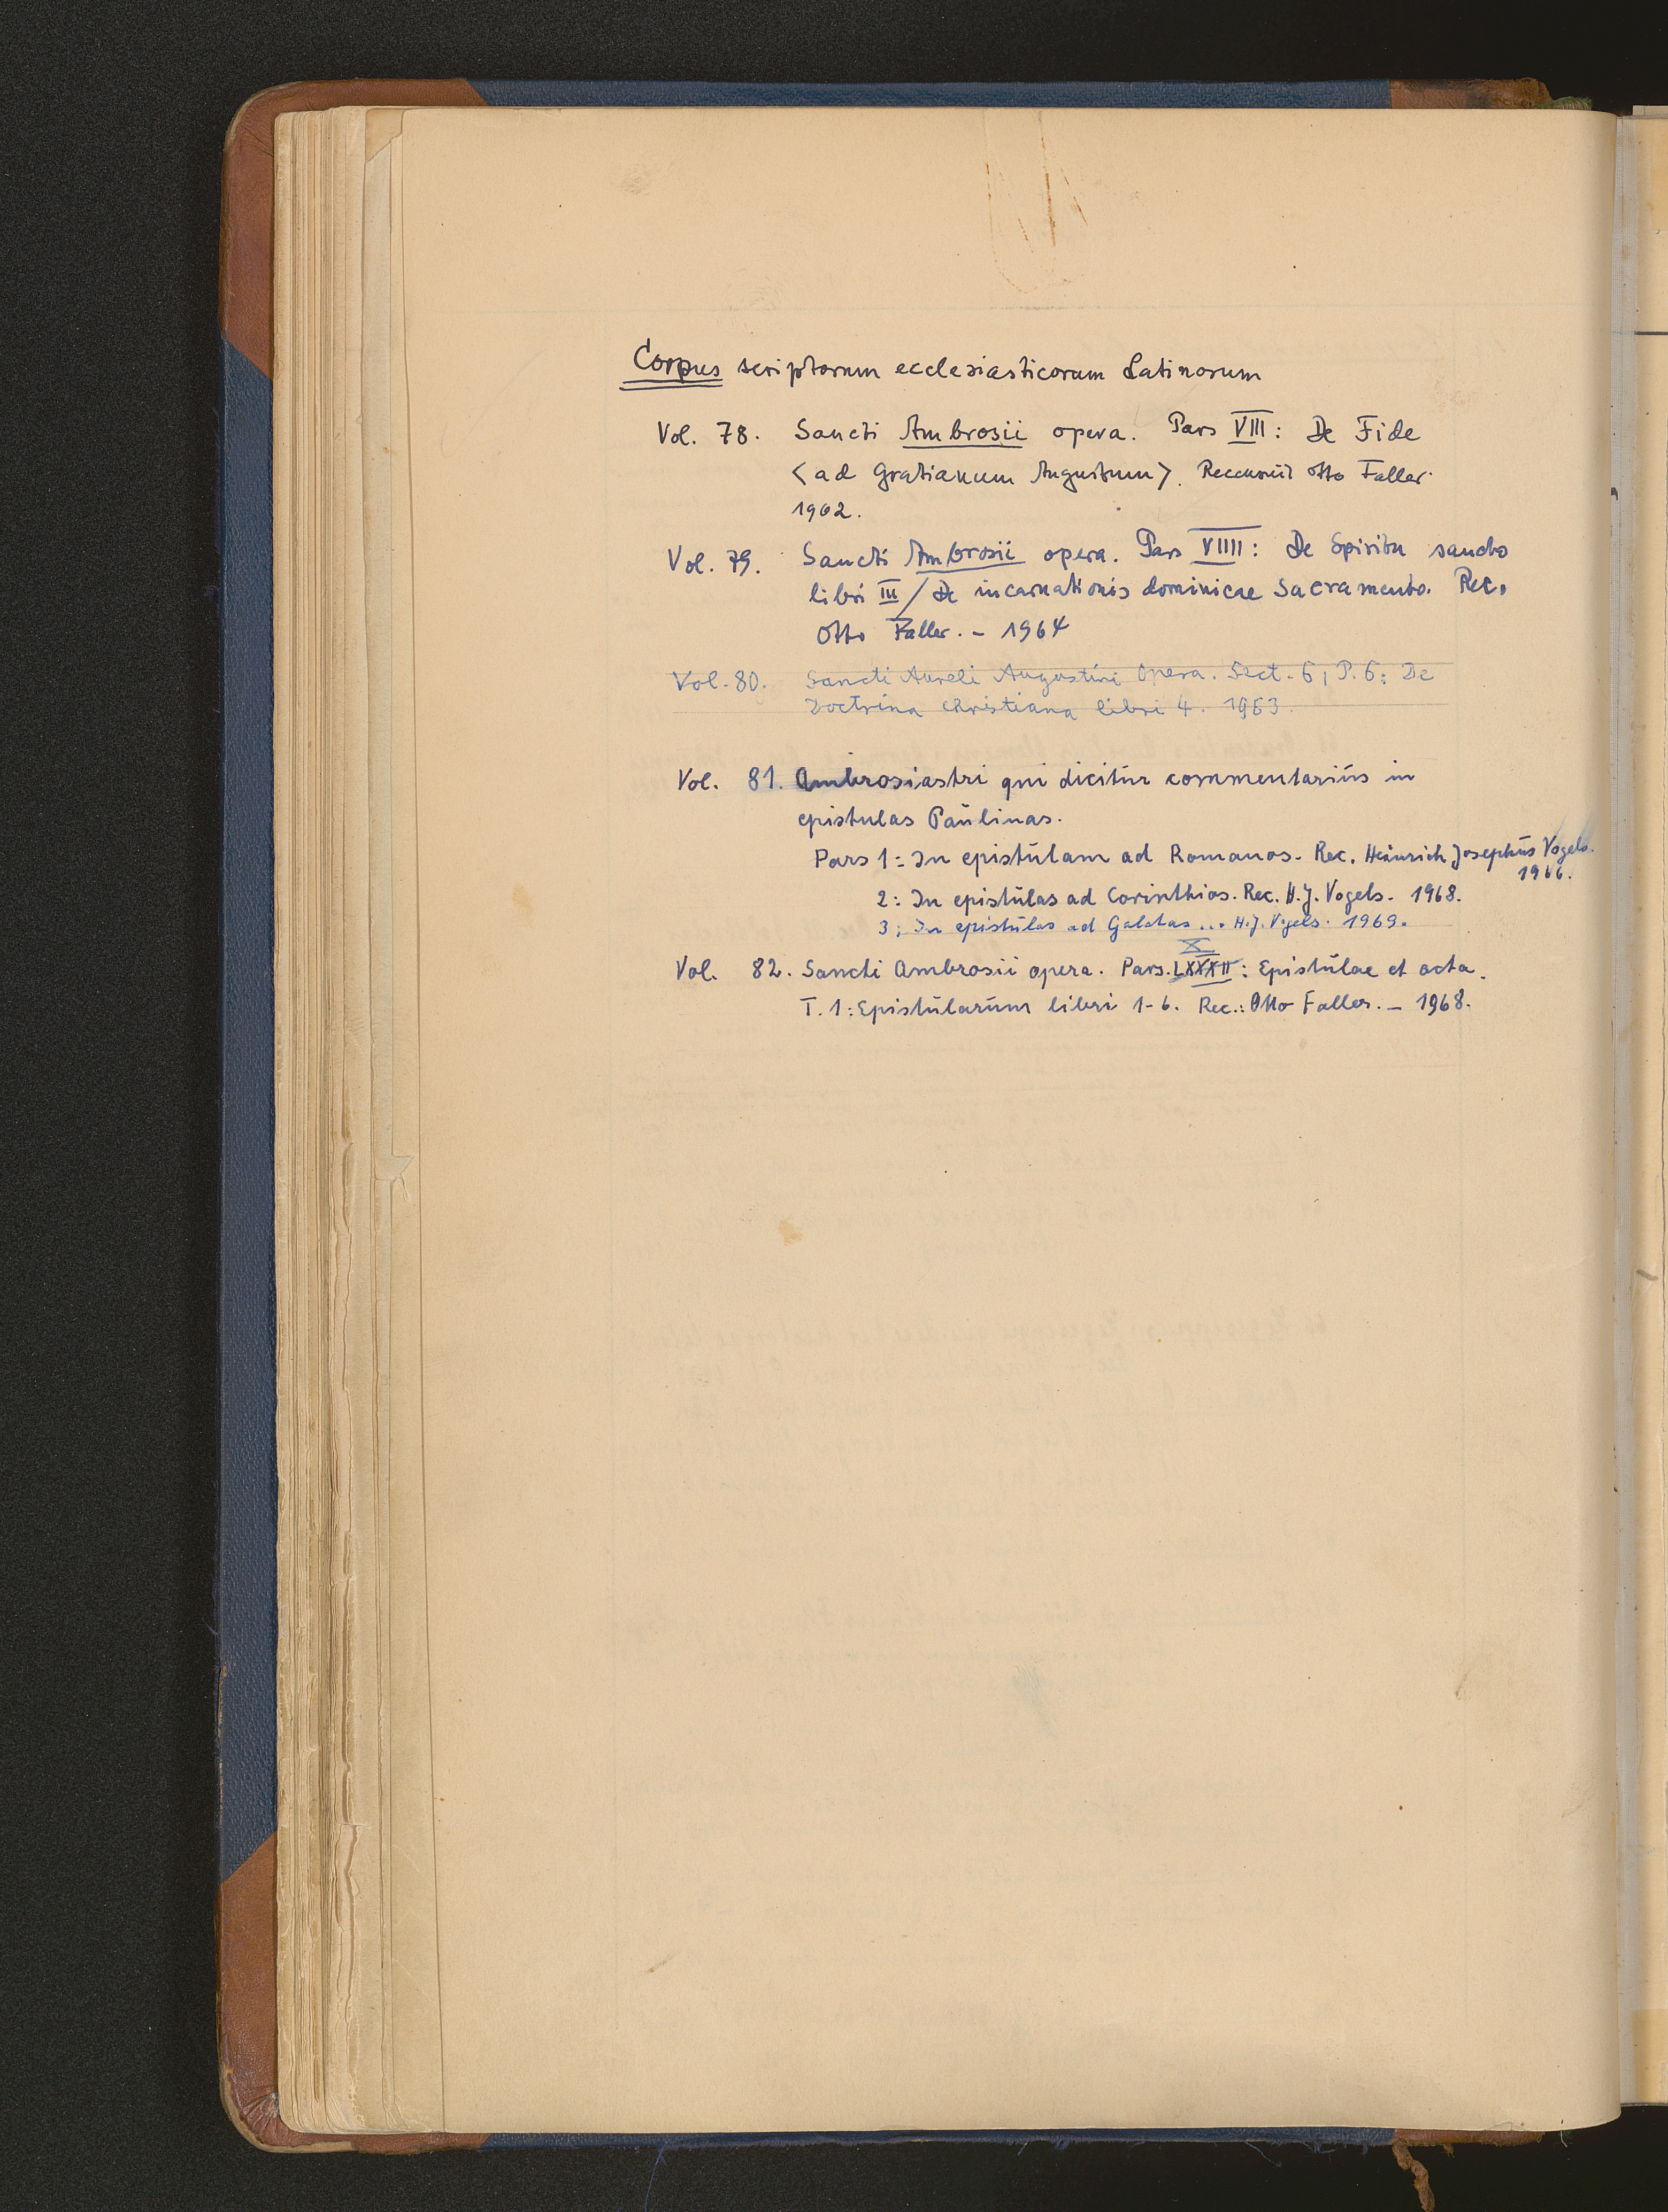 Corpus scriptorum ecclesiasticorum Latinorum
Vol. 78. Sancti Ambrosii opera. Pars VIII: De Fide
<ad Gratianum Augustum>. Recensuit Otto Faller.
1962.
Vol. 79. Sancti Ambrosii opera. Pars VIIII: De Spiritu sancto
libri III / De incarnationis dominicae Sacramento. Rec.
Otto Faller. - 1964
Vol. 80. Sancti Aureli Augustini Opera. Sect. 6, P. 6: De
Doctrina christiana libri 4. 1963.
Vol. 81. Ambrosiastri qui dicitur commentarius in
epistulas Paulinas.
Pars 1: In epistulam ad Romanos. Rec. Heinrich Josephus Vogels.
1966.
2: In epistulas ad Corinthios. Rec. H. J. Vogels. 1968.
3: In epistulas ad Galatas ... H. J. Vogels. 1969.
X
Vol. 82. Sancti Ambrosii opera. Pars. LXXXII: Epistulae et acta.
T. 1: Epistularum libri 1-6. Rec.: Otto Faller. - 1968.